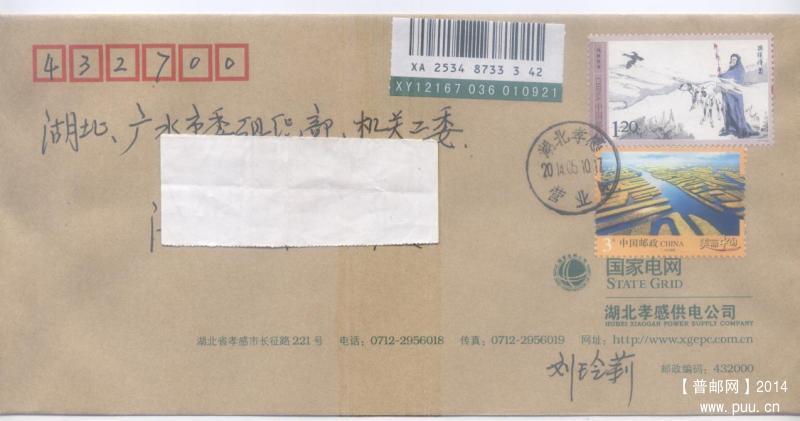 432700
XA 2534 8733 3 42
XY12167 036 010921
湖北、广水市委组织部、机关工委
1.20
湖北孝感
2014.05.10.17
营业
3元
中国邮政 CHINA
美丽中国
国家电网
STATE GRID
湖北孝感供电公司
HUBEI XIAOGAN POWER SUPPLY COMPANY
湖北省孝感市长征路221号 电话：0712-2956018 传真：0712-2956019 网址：http://www.xgepc.com.cn
刘玲莉
邮政编码：432000
【普邮网】2014
www.puu.cn